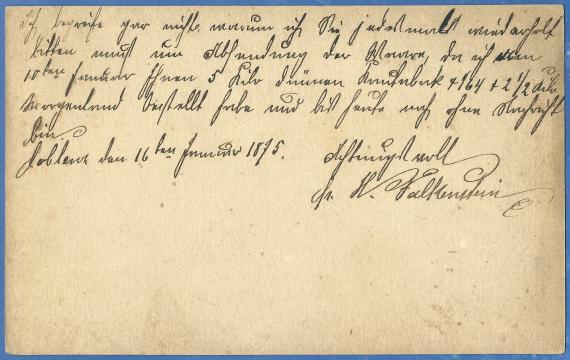 Ich begreife gar nicht, warum ich Sie jedesmal wiederholt
bitten muß um Absendung der Waare, da ich am
10ten Januar Ihnen 5 Kilo dünnen 164 + 2 1/2 Kilo
Morgenland bestellt habe und bis heute noch ohne Nachricht
bin.
Coblenz den 16ten Januar 1875.
Achtungsvoll
H. Falkenstein